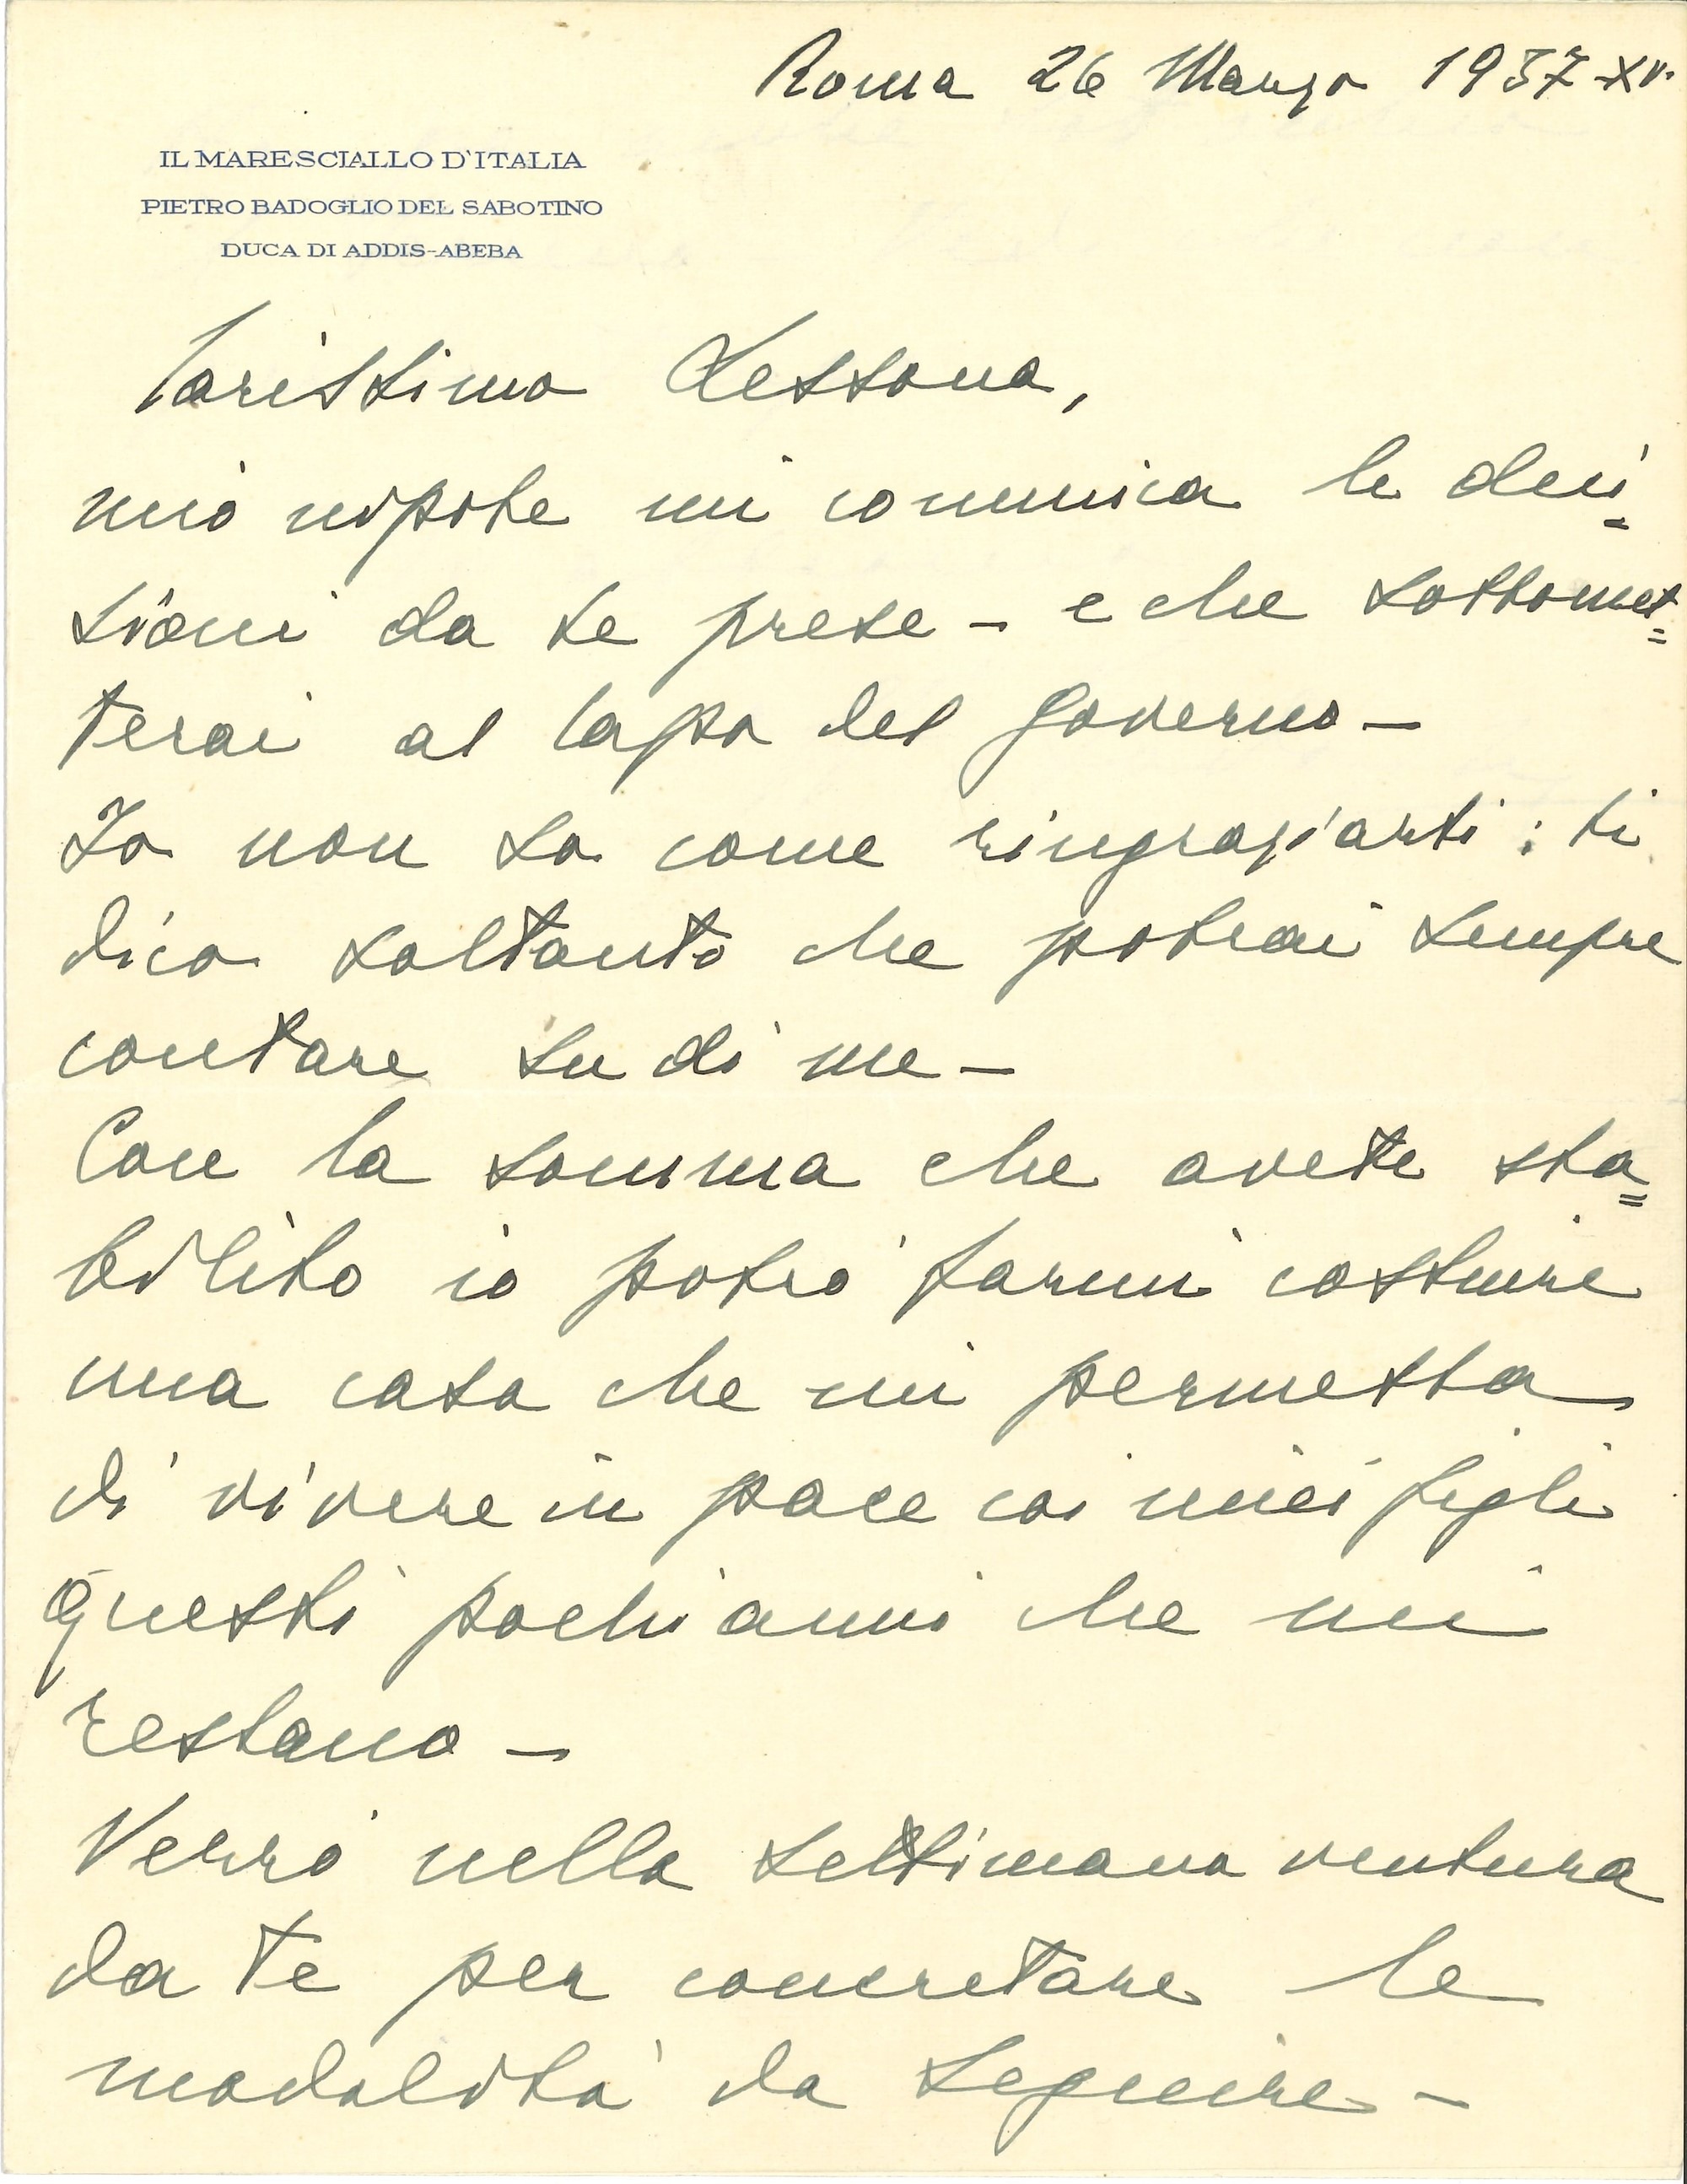 Roma 26 Marzo 1937-XV.
IL MARESCIALLO D'ITALIA
PIETRO BADOGLIO DEL SABOTINO
DUCA DI ADDIS-ABEBA
Carissimo Lessona,
mio nipote mi comunica le deci=
sioni da te prese - e che sottomet=
terai al Capo del Governo -
Io non so come ringraziarti: ti
dico soltanto che potrai sempre
contare su di me -
Con la somma che avete sta=
bilito io potrò farmi costruire
una casa che mi permetta
di vivere in pace coi miei figli
questi pochi anni che mi
restano -
Verrò nella settimana ventura
da te per concretare le
modalità da seguire -